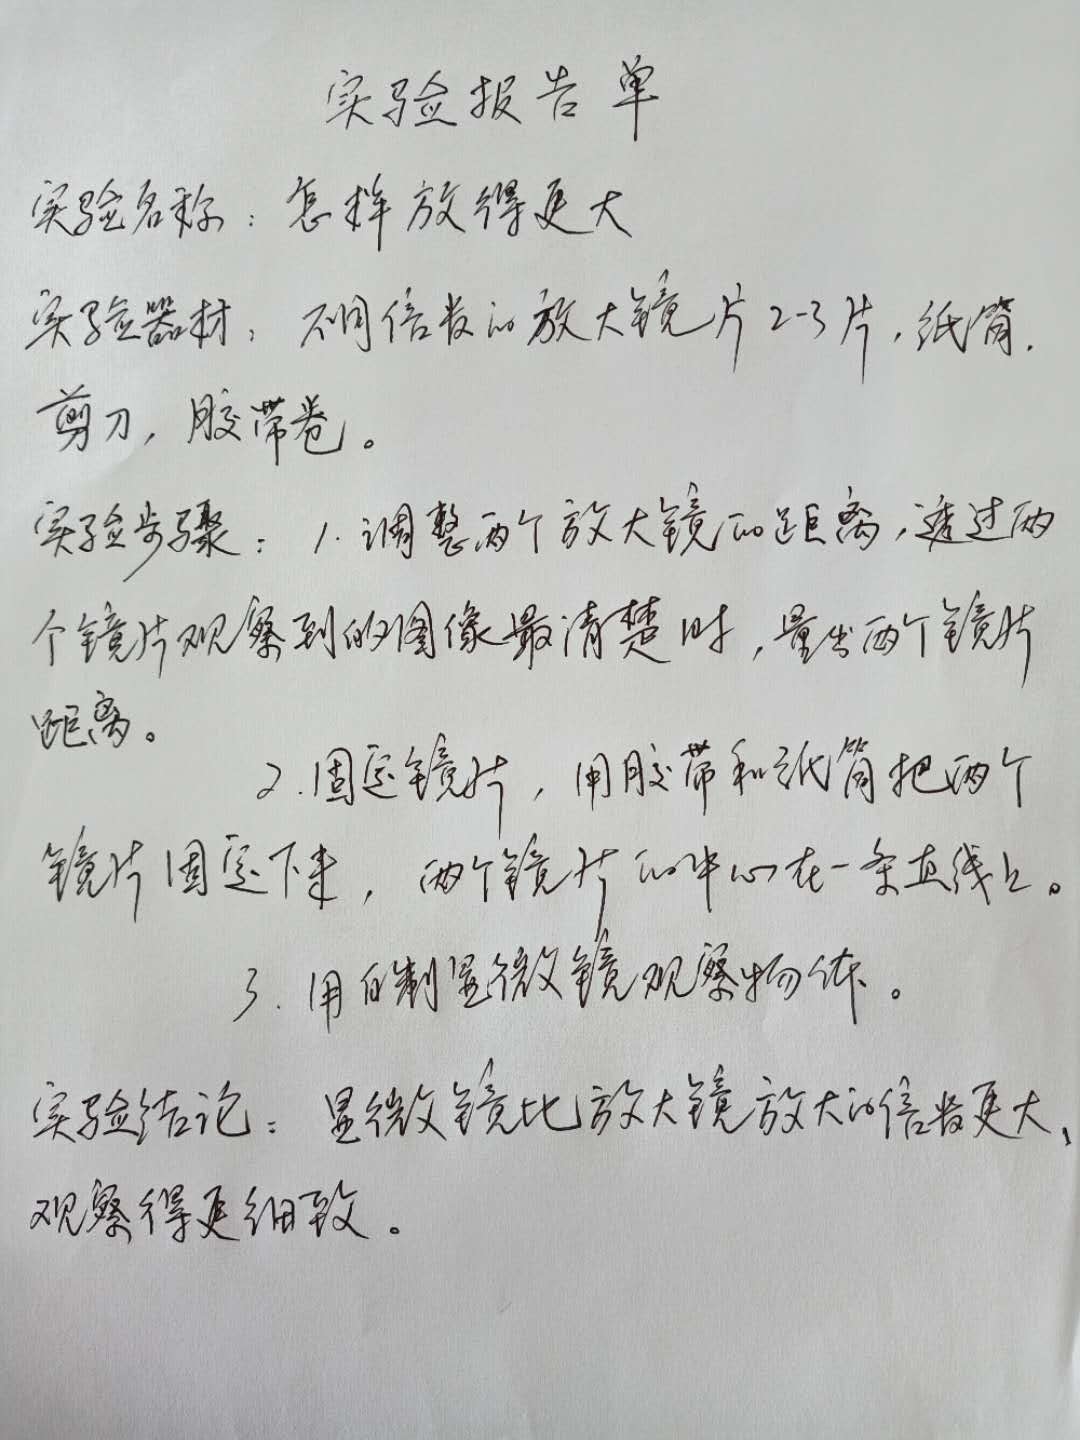 实验报告单
实验名称：怎样放得更大
实验器材：不同倍数的放大镜片2-3片，纸筒，
剪刀，胶带卷。
实验步骤：1.调整两个放大镜的距离，透过两
个镜片观察到的图像最清楚时，量出两个镜片
距离。
2.固定镜片，用胶带和纸筒把两个
镜片固定下来，两个镜片的中心在一条直线上。
3.用自制显微镜观察物体。
实验结论：显微镜比放大镜放大的倍数更大、
观察得更细致。